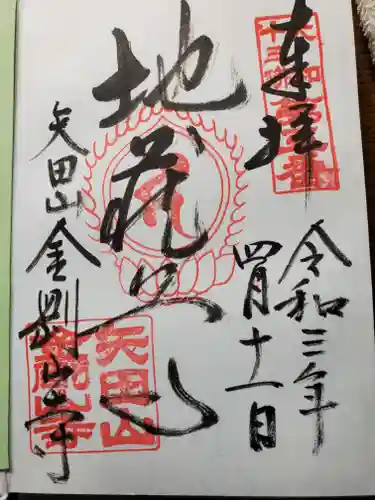 奉拝
令和三年
四月十一日
地蔵
矢田山金剛山寺
矢田山
金剛山寺